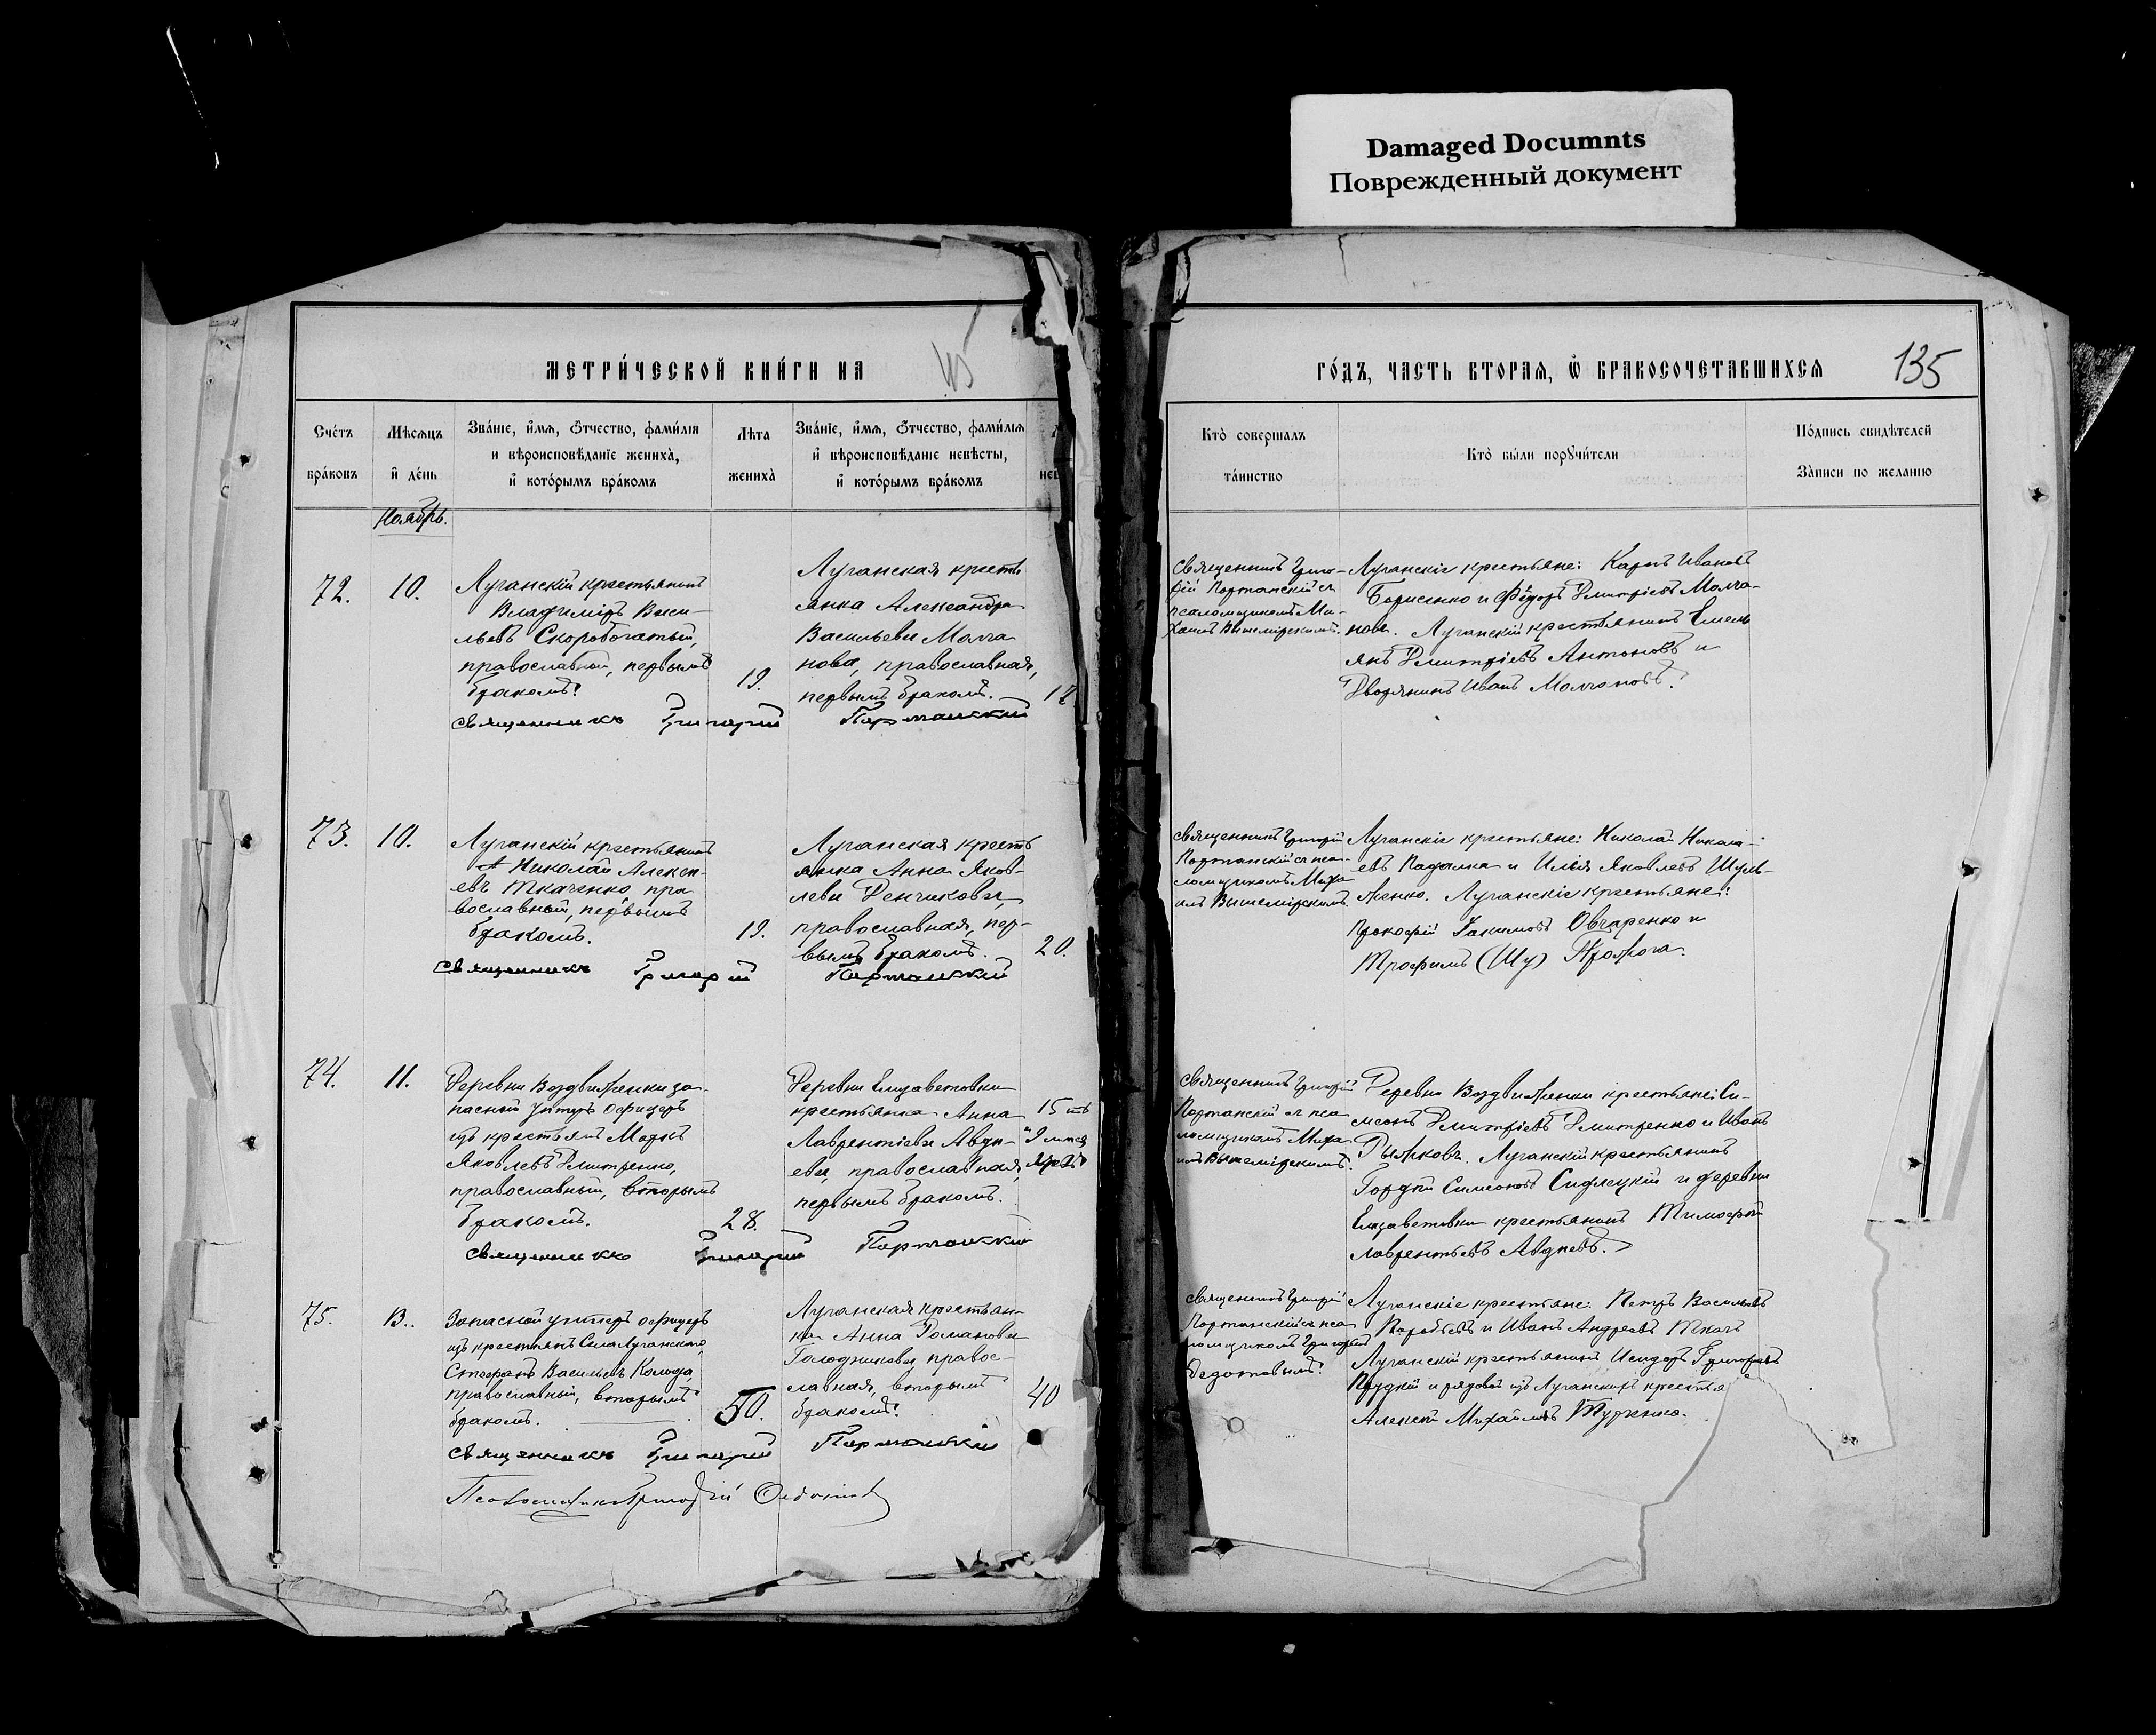 Damaged Documnts
Поврежденный документ
МЕТРИ́ЧЕСКОЙ КНИ́ГИ НА
ГО́ДЪ, ЧАСТЬ ВТОРАЯ, Ѡ БРАКОСОЧЕТАВШИХСЯ
135
Сче́тъ бра́ковъ
Мѣсяцъ и де́нь
Зва́нїе, и́мя, ѻ́тчество, фами́лїя
и вѣроисповѣданїе жениха̀,
и кото́рымъ бра́комъ
Лѣта жениха̀
Зва́нїе, и́мя, ѻ́тчество, фами́лїя
и вѣроисповѣданїе невѣсты,
и кото́рымъ бра́комъ
Кто̀ совершалъ
та́инство
Кто̀ бы́ли порꙋчи́тели
По́дпись свидѣтелей
За̀писи по желанію
Ноябрь.
72.
10.
Луганскій крестьянинъ
Владиміръ Васи-
льевъ Скоробогатый,
православный, первымъ
бракомъ.
19.
Луганская кресть
янка Александра
Васильева Молча
нова, православная,
первымъ бракомъ.
17
Священникъ Григорій Порտанскій
Священникъ Григо-
рій Портанскій съ
псаломщикомъ Ми-
хаил Вышемірскимъ.
Луганскіе крестьяне: Карпъ Ивановъ
Борисенко и Ѳедоръ Дмитріевъ Молча-
новъ. Луганскій крестьянинъ Емель
янъ Дмитріевъ Антоновъ и
Дворянинъ Иванъ Молчановъ.
73.
10.
Луганскій крестьянинъ
Николай Алексѣ-
евъ Ткаченко пра
вославный, первымъ
бракомъ.
19.
Луганская кресть
янка Анна Яков-
лева Денчикова,
православная, пер-
вымъ бракомъ.
20.
Священникъ Григорій Портанскій
Священникъ Григорій
Портанскій съ пса-
ломщикомъ Миха
иломъ Вышемірскимъ.
Луганскіе крестьяне: Николай Никола-
евъ Падалка и Илія Яковлевъ Шуль-
женко. Луганскіе крестьяне:
Прокофій Іакимовъ Овчаренко и
Трофимъ (Шу)
74.
11.
Деревни Воздвиженки за-
пасной унтеръ офицеръ
изъ крестьянъ Маркъ
Яковлевъ Дмитренко,
православный, вторымъ
бракомъ.
28.
Деревни Елизаветовки
крестьянка Анна
Лаврентіева Авдѣ-
ева, православная,
первымъ бракомъ.
15 ть
Священникъ Григорій Портанскій
Священникъ Григорій
Портанскій съ пса
ломщикомъ Миха
иломъ Вышемірскимъ.
Деревни Воздвиженки крестьяне: Си-
меонъ Дмитріевъ Дмитренко и Иванъ
Рыжковъ. Луганскій крестьянинъ
Гордѣй Симеоновъ и деревни
Елизаветовки крестьянинъ Тимофей
Лаврентьевъ Авдѣевъ.
75.
Запасной унтеръ офицеръ
изъ крестьянъ Села Луганскаго,
Стефанъ Васильевъ Колода,
православный, вторымъ
бракомъ.
50.
Луганская крестьян-
ка Анна Романова
Голодникова, правос-
лавная, вторымъ
бракомъ.
40
Священникъ Григорій Портанскій
Священникъ Григорій
Портанскій съ пса
ломщикомъ Григоріемъ
Ѳедотовымъ.
Луганскіе крестьяне: Петръ Васильевъ
Воробьевъ и Иванъ Андреевъ Ткачъ
Луганскій крестьянинъ Исидоръ Григорьевъ
Прудкій и рядовой изъ Луганскихъ крестья
Алексѣй Михайловъ
Псаломщикъ Григорій Ѳедотовъ